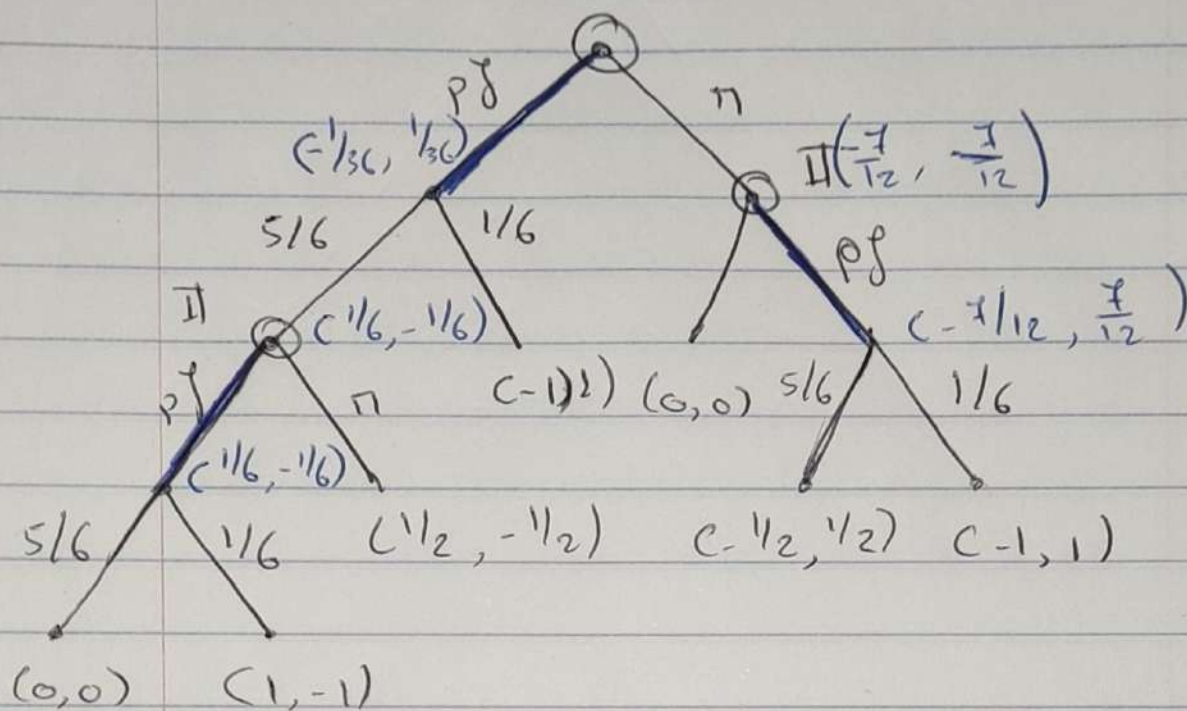 n
(-1/36, 1/36)
II(-7/12, -7/12)
5/6 1/6
II (1/6, -1/6) (-7/12, 7/12)
n (-1,1) (0,0) 5/6 1/6
(1/6, -1/6)
5/6 1/6 (1/2, -1/2) (-1/2, 1/2) (-1, 1)
(0,0) (1,-1)